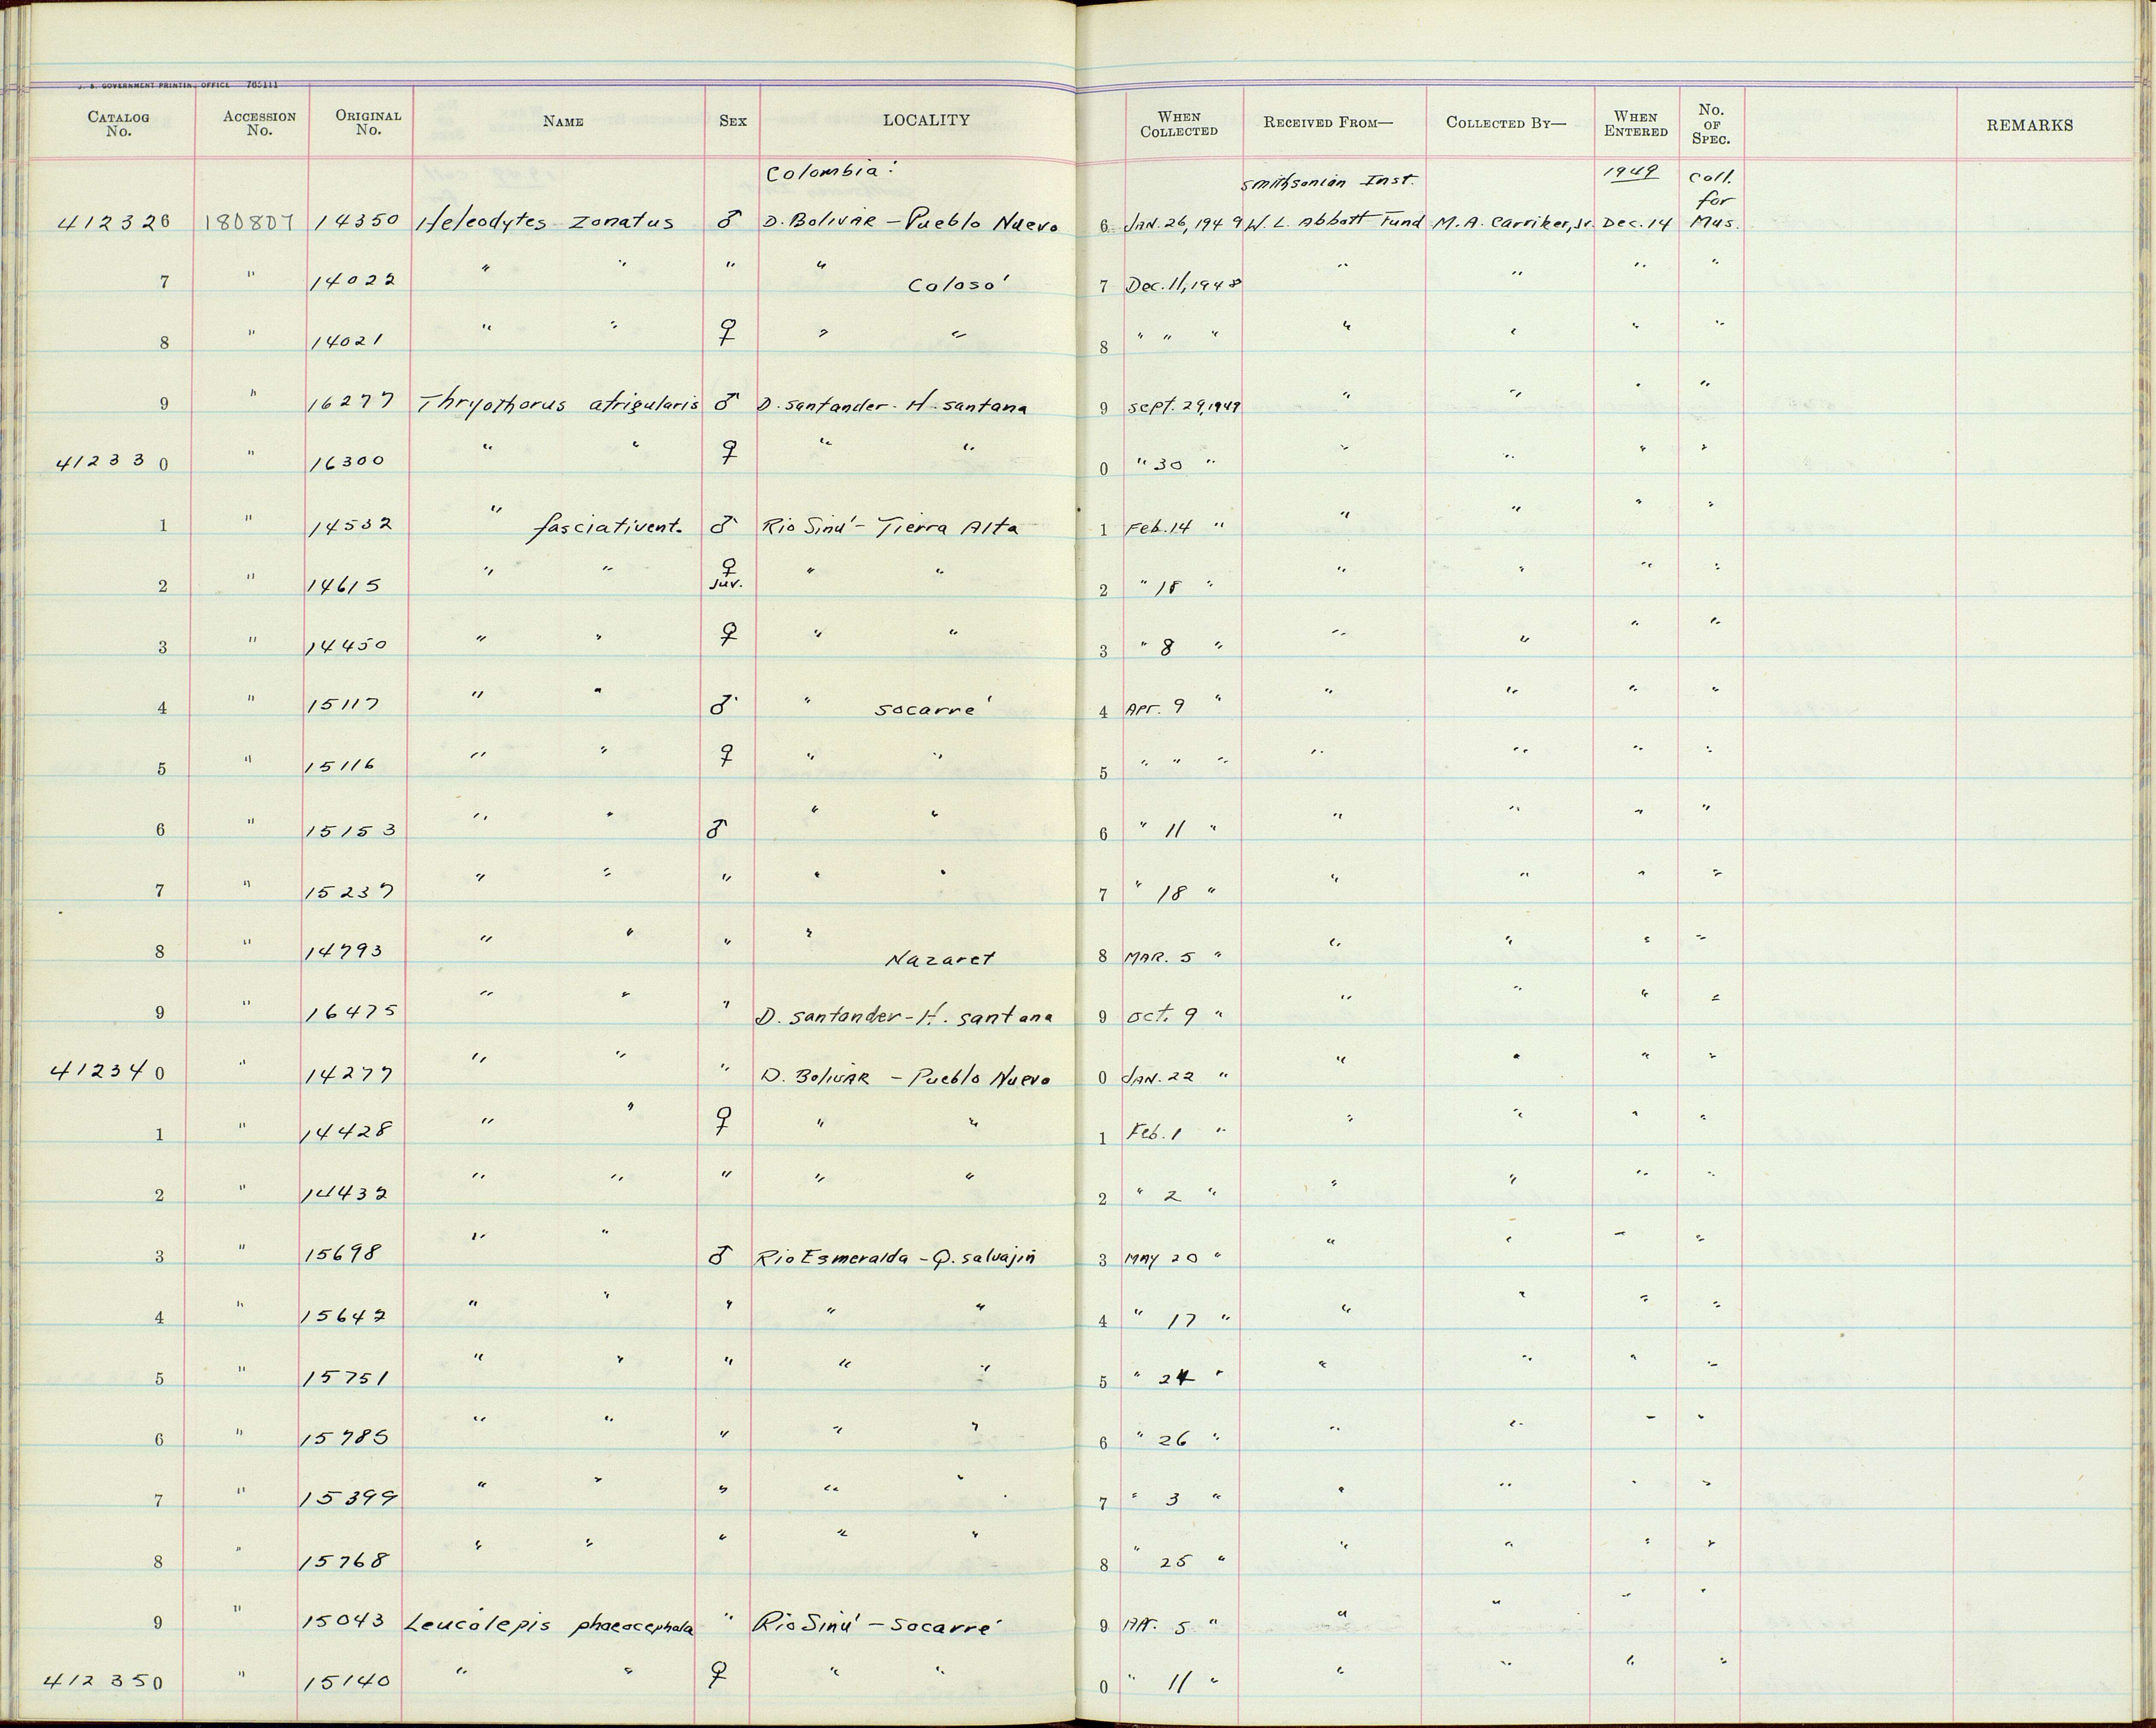 U. S. GOVERNMENT PRINTING OFFICE 765111
CATALOG No. ACCESSION No. ORIGINAL No. NAME SEX LOCALITY WHEN COLLECTED RECEIVED FROM— COLLECTED BY— WHEN ENTERED No. OF SPEC. REMARKS
Colombia: Smithsonian Inst. 1949 Coll. for
412326 180807 14350 Heleodytes zonatus ♂ D. Bolivar – Pueblo Nuevo 6 Jan. 26, 1949 W. L. Abbott Fund M. A. Carriker, Jr. Dec. 14 Mus.
7 " 14022 " " " " Colosó 7 Dec. 11, 1948 " " " "
8 " 14021 " " ♀ " " 8 " " " " " " "
9 " 16277 Thryothorus atrigularis ♂ D. Santander - H. Santana 9 Sept. 29, 1949 " " " "
412330 " 16300 " " ♀ " " 0 " 30 " " " " "
1 " 14532 " fasciativent. ♂ Rio Sinú - Tierra Alta 1 Feb. 14 " " " " "
2 " 14615 " " ♀ Juv. " " 2 " 18 " " " " "
3 " 14450 " " ♀ " " 3 " 8 " " " " "
4 " 15117 " " ♂ " Socarré 4 Apr. 9 " " " " "
5 " 15116 " " ♀ " " 5 " " " " " " "
6 " 15153 " " ♂ " " 6 " 11 " " " " "
7 " 15237 " " " " " 7 " 18 " " " " "
8 " 14793 " " " " Nazaret 8 Mar. 5 " " " " "
9 " 16475 " " " D. Santander - H. Santana 9 Oct. 9 " " " " "
412340 " 14277 " " " D. Bolivar – Pueblo Nuevo 0 Jan. 22 " " " " "
1 " 14428 " " ♀ " " 1 Feb. 1 " " " " "
2 " 14432 " " " " " 2 " 2 " " " " "
3 " 15698 " " ♂ Rio Esmeralda - Q. Salvajin 3 May 20 " " " " "
4 " 15642 " " " " " 4 " 17 " " " " "
5 " 15751 " " " " " 5 " 24 " " " " "
6 " 15785 " " " " " 6 " 26 " " " " "
7 " 15399 " " " " " 7 " 3 " " " " "
8 " 15768 " " " " " 8 " 25 " " " " "
9 " 15043 Leucolepis phaeocephala " Rio Sinú – Socarré 9 Apr. 5 " " " " "
412350 " 15140 " " ♀ " " 0 " 11 " " " " "